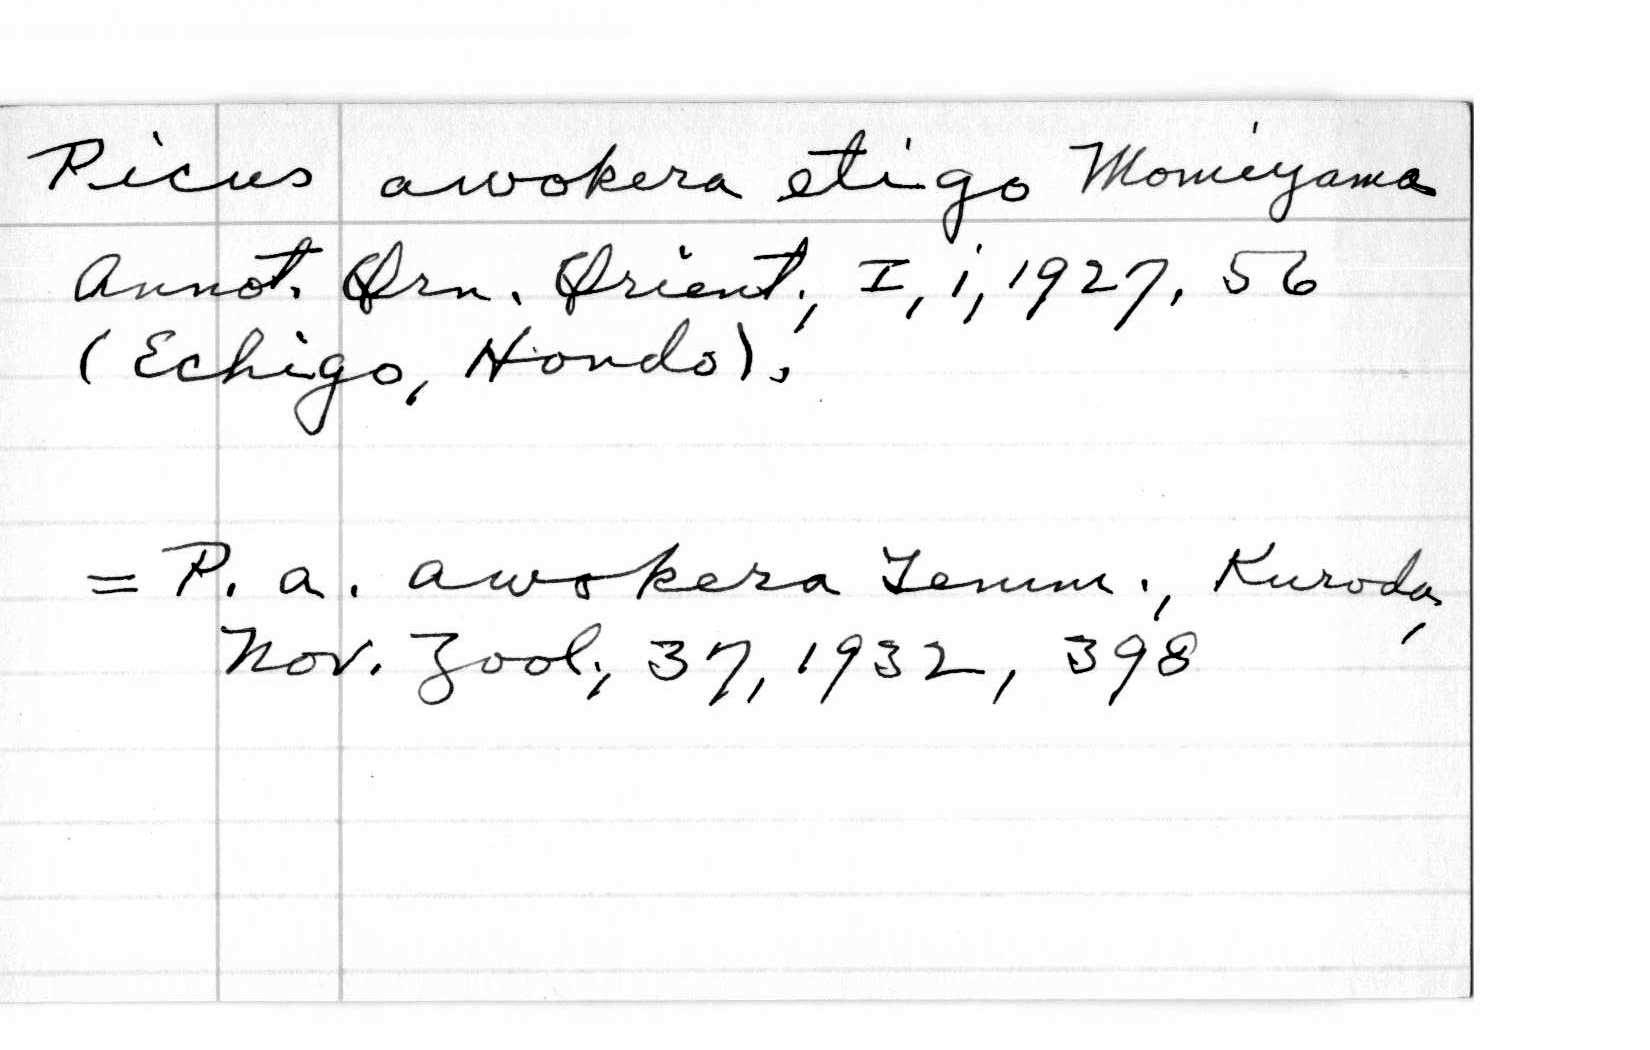 Picus awokera etigo Momiyama
Annot. Orn. Orient., I, i, 1927, 56
(Echigo, Hondo).
= P. a. awokera Temm., Kuroda,
Nov. Zool., 37, 1932, 398